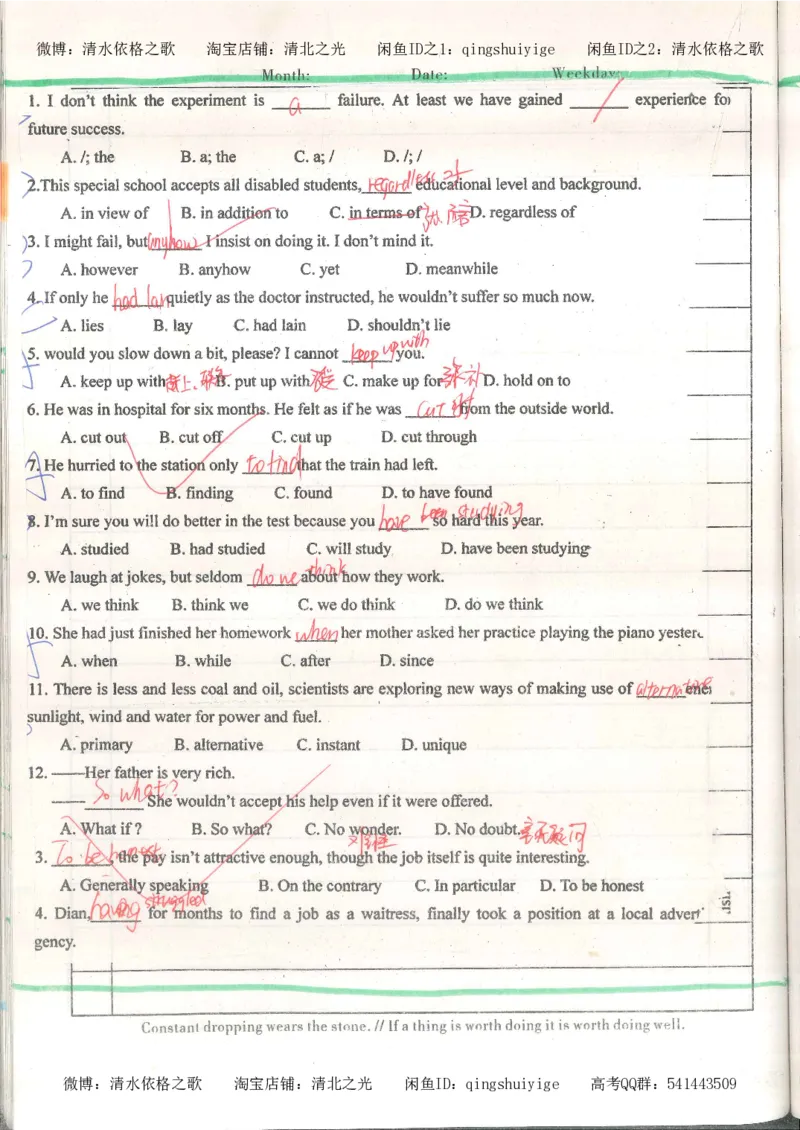 微博：清水依格之歌 淘宝店铺：清北之光 闲鱼ID之1：qingshuiyige 闲鱼ID之2：清水依格之歌
Month: Date: Weekday:
1. I don't think the experiment is a failure. At least we have gained / experience for
future success.
A. /; the B. a; the C. a; / D. /; /
2.This special school accepts all disabled students, regardless of educational level and background.
A. in view of B. in addition to C. in terms of D. regardless of
3. I might fail, but (anyhow) I insist on doing it. I don't mind it.
A. however B. anyhow C. yet D. meanwhile
4. If only he had lain quietly as the doctor instructed, he wouldn't suffer so much now.
A. lies B. lay C. had lain D. shouldn't lie
5. would you slow down a bit, please? I cannot keep up with you.
A. keep up with B. put up with C. make up for D. hold on to
6. He was in hospital for six months. He felt as if he was cut off from the outside world.
A. cut out B. cut off C. cut up D. cut through
7. He hurried to the station only to find that the train had left.
A. to find B. finding C. found D. to have found
8. I'm sure you will do better in the test because you have been studying so hard this year.
A. studied B. had studied C. will study D. have been studying
9. We laugh at jokes, but seldom do we think about how they work.
A. we think B. think we C. we do think D. do we think
10. She had just finished her homework when her mother asked her practice playing the piano yester
A. when B. while C. after D. since
11. There is less and less coal and oil, scientists are exploring new ways of making use of alternative ene
sunlight, wind and water for power and fuel.
A. primary B. alternative C. instant D. unique
12. ——Her father is very rich.
—— So what? She wouldn't accept his help even if it were offered.
A. What if ? B. So what? C. No wonder. D. No doubt. 毫无疑问
难怪
3. To be honest, the pay isn't attractive enough, though the job itself is quite interesting.
A. Generally speaking B. On the contrary C. In particular D. To be honest
4. Dian, having struggled for months to find a job as a waitress, finally took a position at a local advert
gency.
Constant dropping wears the stone. // If a thing is worth doing it is worth doing well.
微博：清水依格之歌 淘宝店铺：清北之光 闲鱼ID：qingshuiyige 高考QQ群：541443509